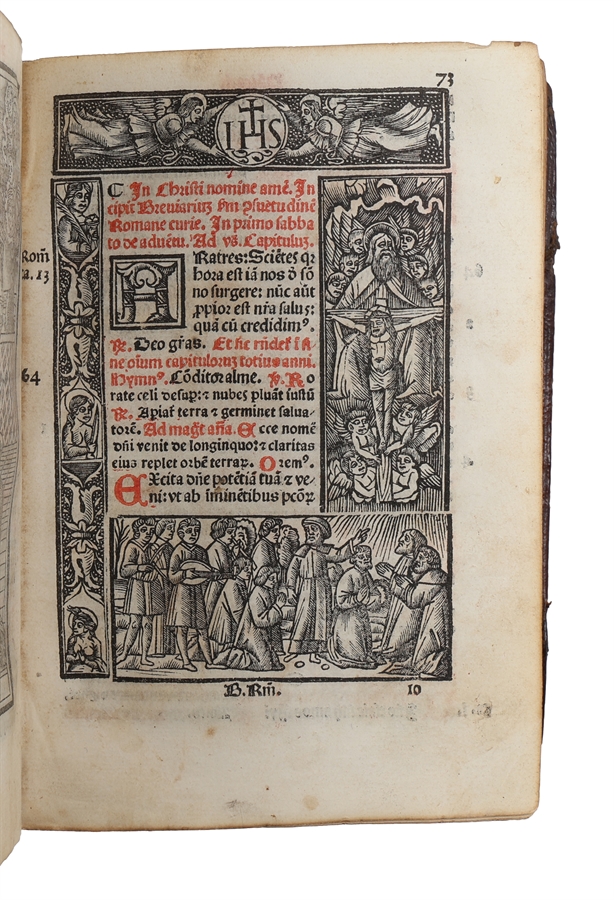 73
IHS
In Christi nomine amē. In
cipit Breuiariuʒ ẜm ꝯsuetudinē
Romane curie. In primo sabba
to de aduētu. Ad vs̄. Capituluʒ.
FRatres: Sciētes qꝛ
Rom̄
hora est iā nos ō sō
a. 13
no surgere: nūc aūt
ꝓpior est nr̄a salus:
quā cū credidimꝰ.
℟. Deo gr̄as. Et hic
ne oīum capituloruʒ totius anni.
64
Hymnꝰ. Cōditor alme. ℣. Ro
rate celi desuꝑ: ⁊ nubes pluāt iustū
℟. Apiaꝉ terra ⁊ germinet salua-
torē. Ad maḡt aña. Ecce nomē
dñi venit de longinquo: ⁊ claritas
eius replet orbē terraꝝ. Oremꝰ.
EXcita dn̄e potētiā tuā ⁊ ve
ni: vt ab īminētibus pcōꝝ
B. Rm̄.
10